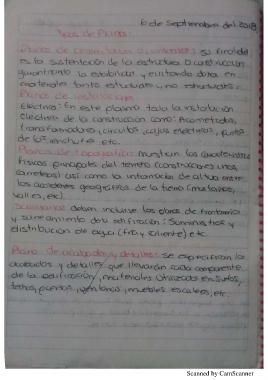 6 de Septiembre del 2018
Tipos de Planos:
Planos de cimentación o cimientos: su finalidad
es la sustentación de la estructura o construcción
garantizando la estabilidad y evitando daños en
materiales tanto estructurales y no estructurales.
Planos de instalaciones
Eléctrico: En este plasmo toda la instalación
electrica de la construcción como: Acometidas,
transformadores, circuitos, cajas electricas, puntos
de luz, enchufes etc.
Planos de topografico: muestran las características
físicas principales del terreno (construcciones, ríos,
carreteras) así como la información de altura entre
los accidentes geograficos de la tierra (montañas,
valles, etc).
Sanitarios: deben incluirse las obras de fontaneria
y saneamiento de la edificación: Suministros y
distribución de agua (fría y caliente) etc.
Plano de acabados y detalles: se especifican los
acabados y detalles que llevarán cada componente
de la edificación, materiales utilizados en suelos,
techos, puertas, ventanas, muebles, escaleras, etc.
Scanned by CamScanner